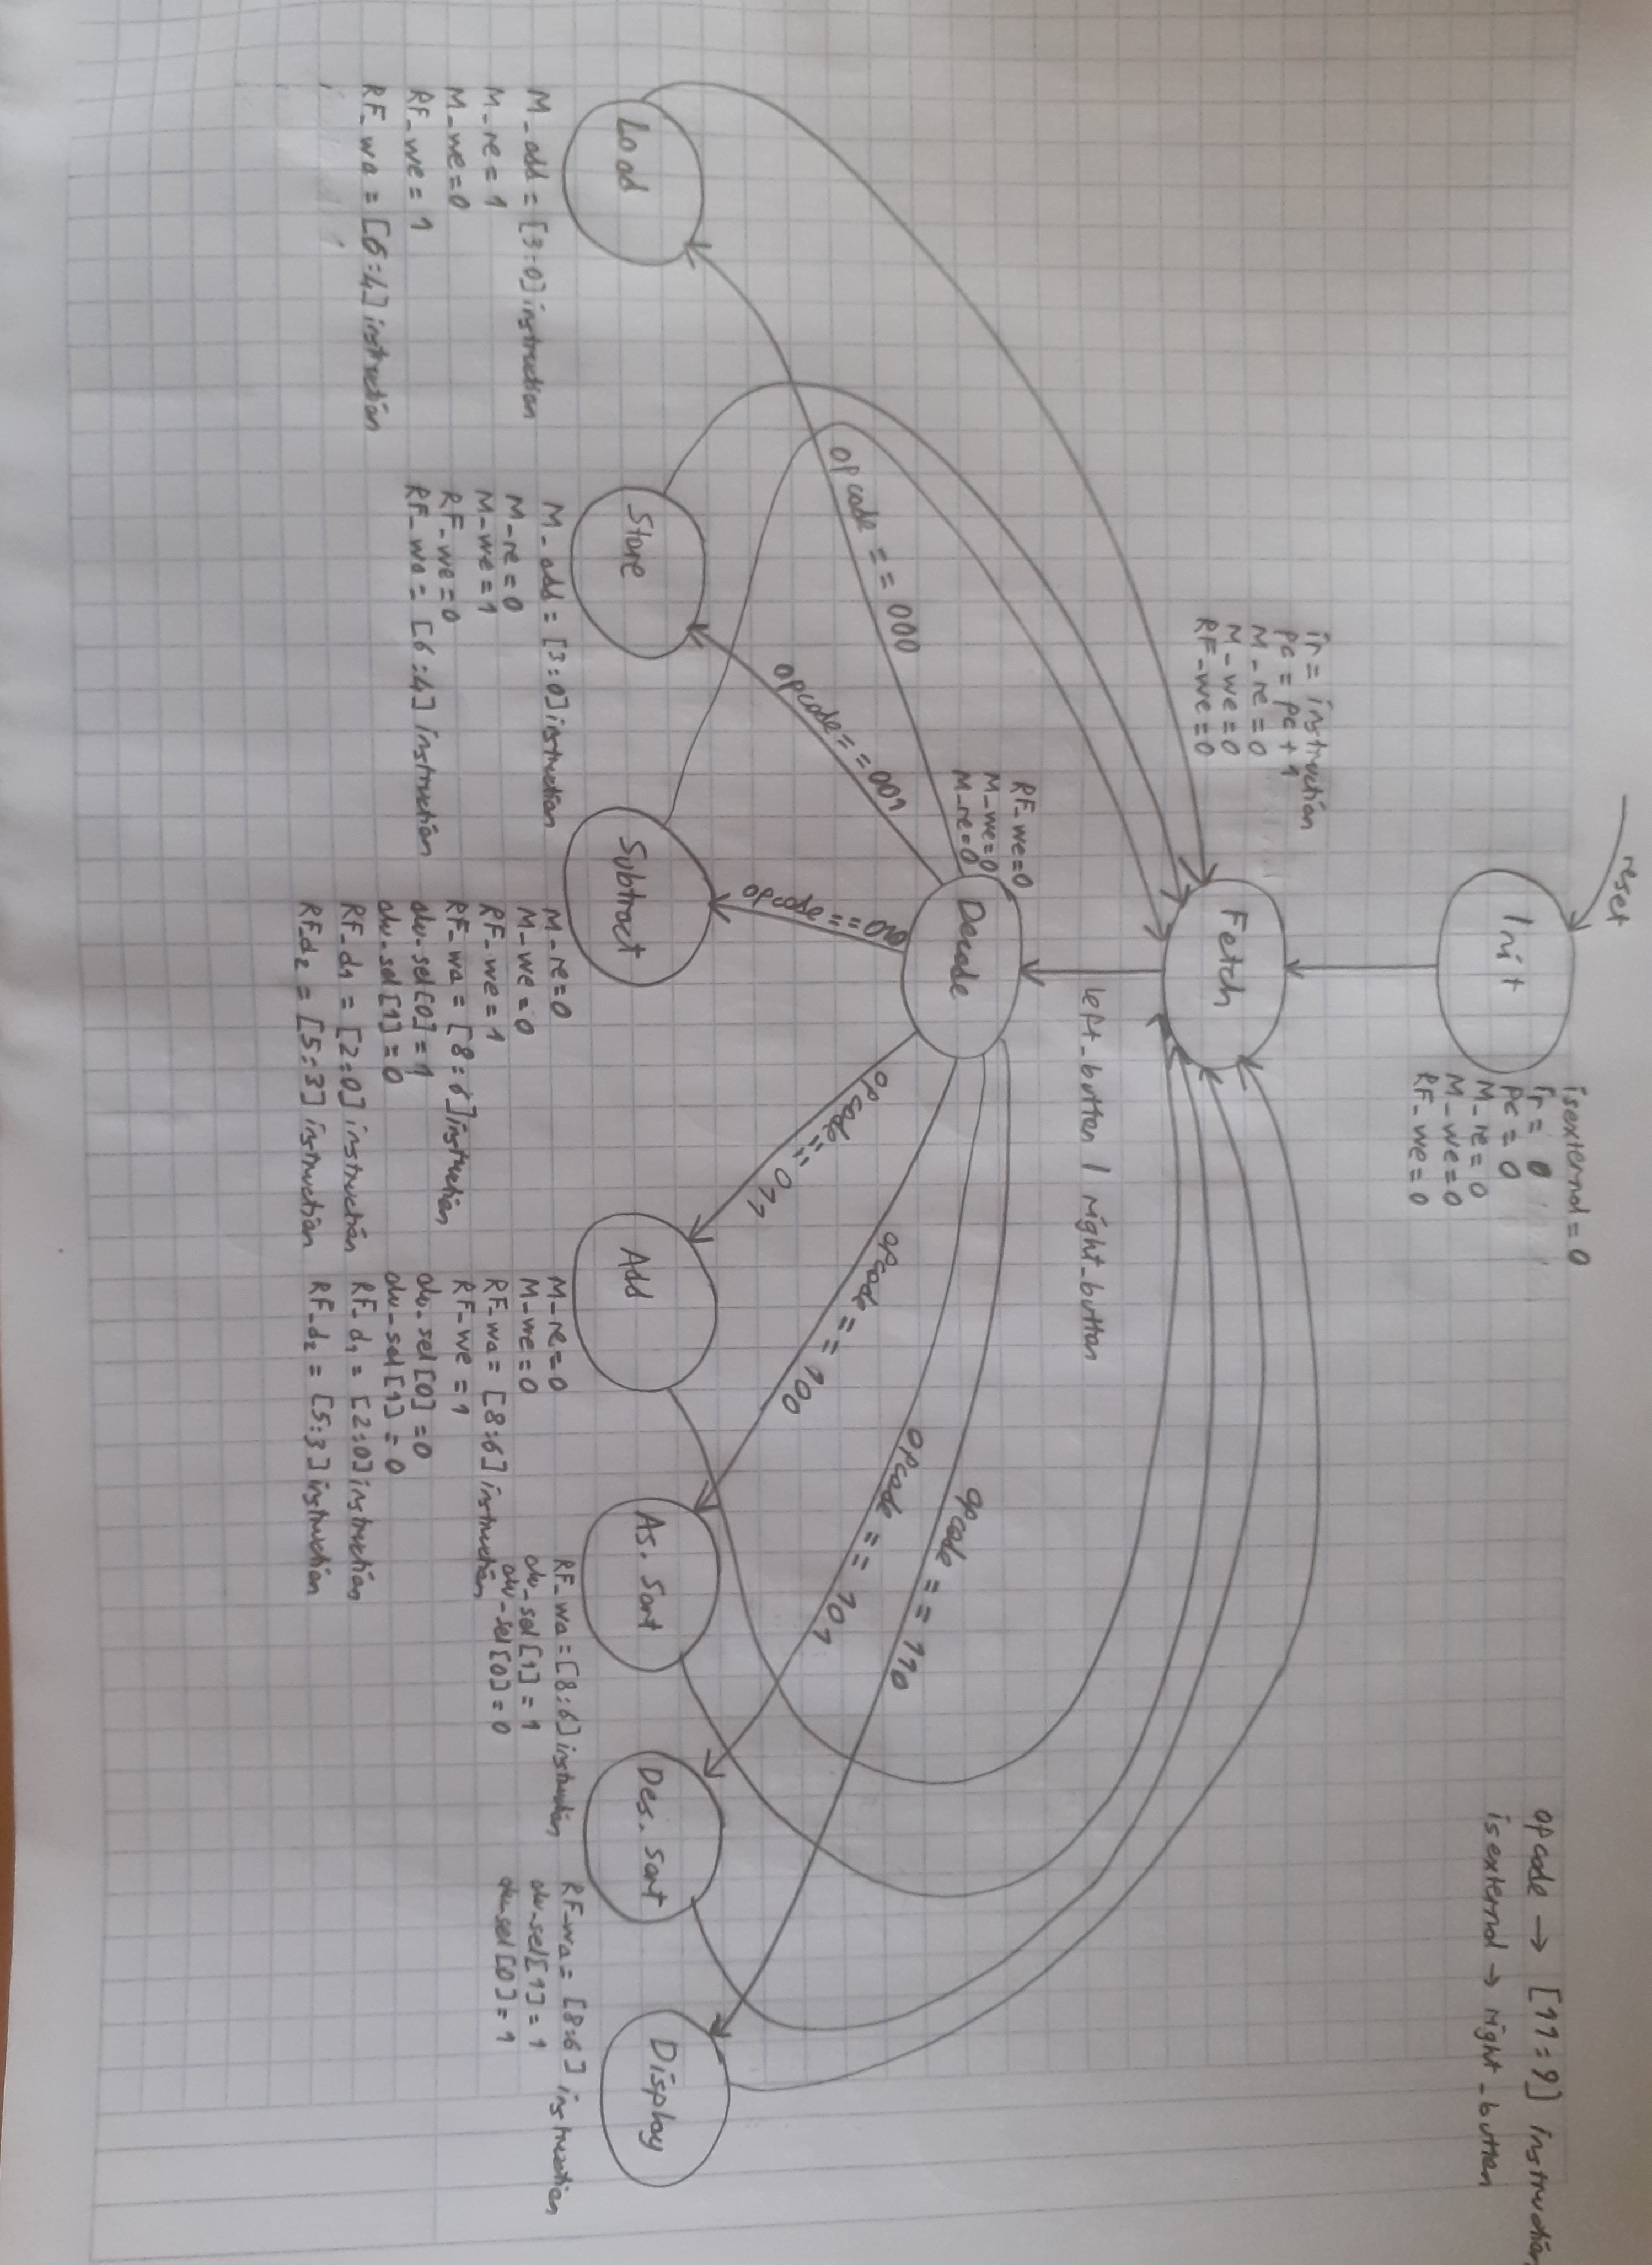 reset
Init
isexternal = 0
ir = 0
pc = 0
M_re = 0
M_we = 0
RF_we = 0
opcode → [11:9] instruction
isexternal → right_button
ir = instruction
pc = pc + 1
M_re = 0
M_we = 0
RF_we = 0
Fetch
left_button | right_button
RF_we = 0
M_we = 0
M_re = 0
Decode
opcode == 000
opcode == 001
opcode == 010
opcode == 011
opcode == 100
opcode == 101
opcode == 110
Load
M_add = [3:0] instruction
M_re = 1
M_we = 0
RF_we = 1
RF_wa = [6:4] instruction
Store
M_add = [3:0] instruction
M_re = 0
M_we = 1
RF_we = 0
RF_wa = [6:4] instruction
Subtract
M_re = 0
M_we = 0
RF_we = 1
RF_wa = [8:6] instruction
alu_sel[0] = 1
alu_sel[1] = 0
RF_d1 = [2:0] instruction
RF_d2 = [5:3] instruction
Add
M_re = 0
M_we = 0
RF_wa = [8:6] instruction
RF_we = 1
alu_sel[0] = 0
alu_sel[1] = 0
RF_d1 = [2:0] instruction
RF_d2 = [5:3] instruction
As. Sort
RF_wa = [8:6] instruction
alu_sel[1] = 1
alu_sel[0] = 0
Des. Sort
RF_wa = [8:6] instruction
alu_sel[1] = 1
alu_sel[0] = 1
Display